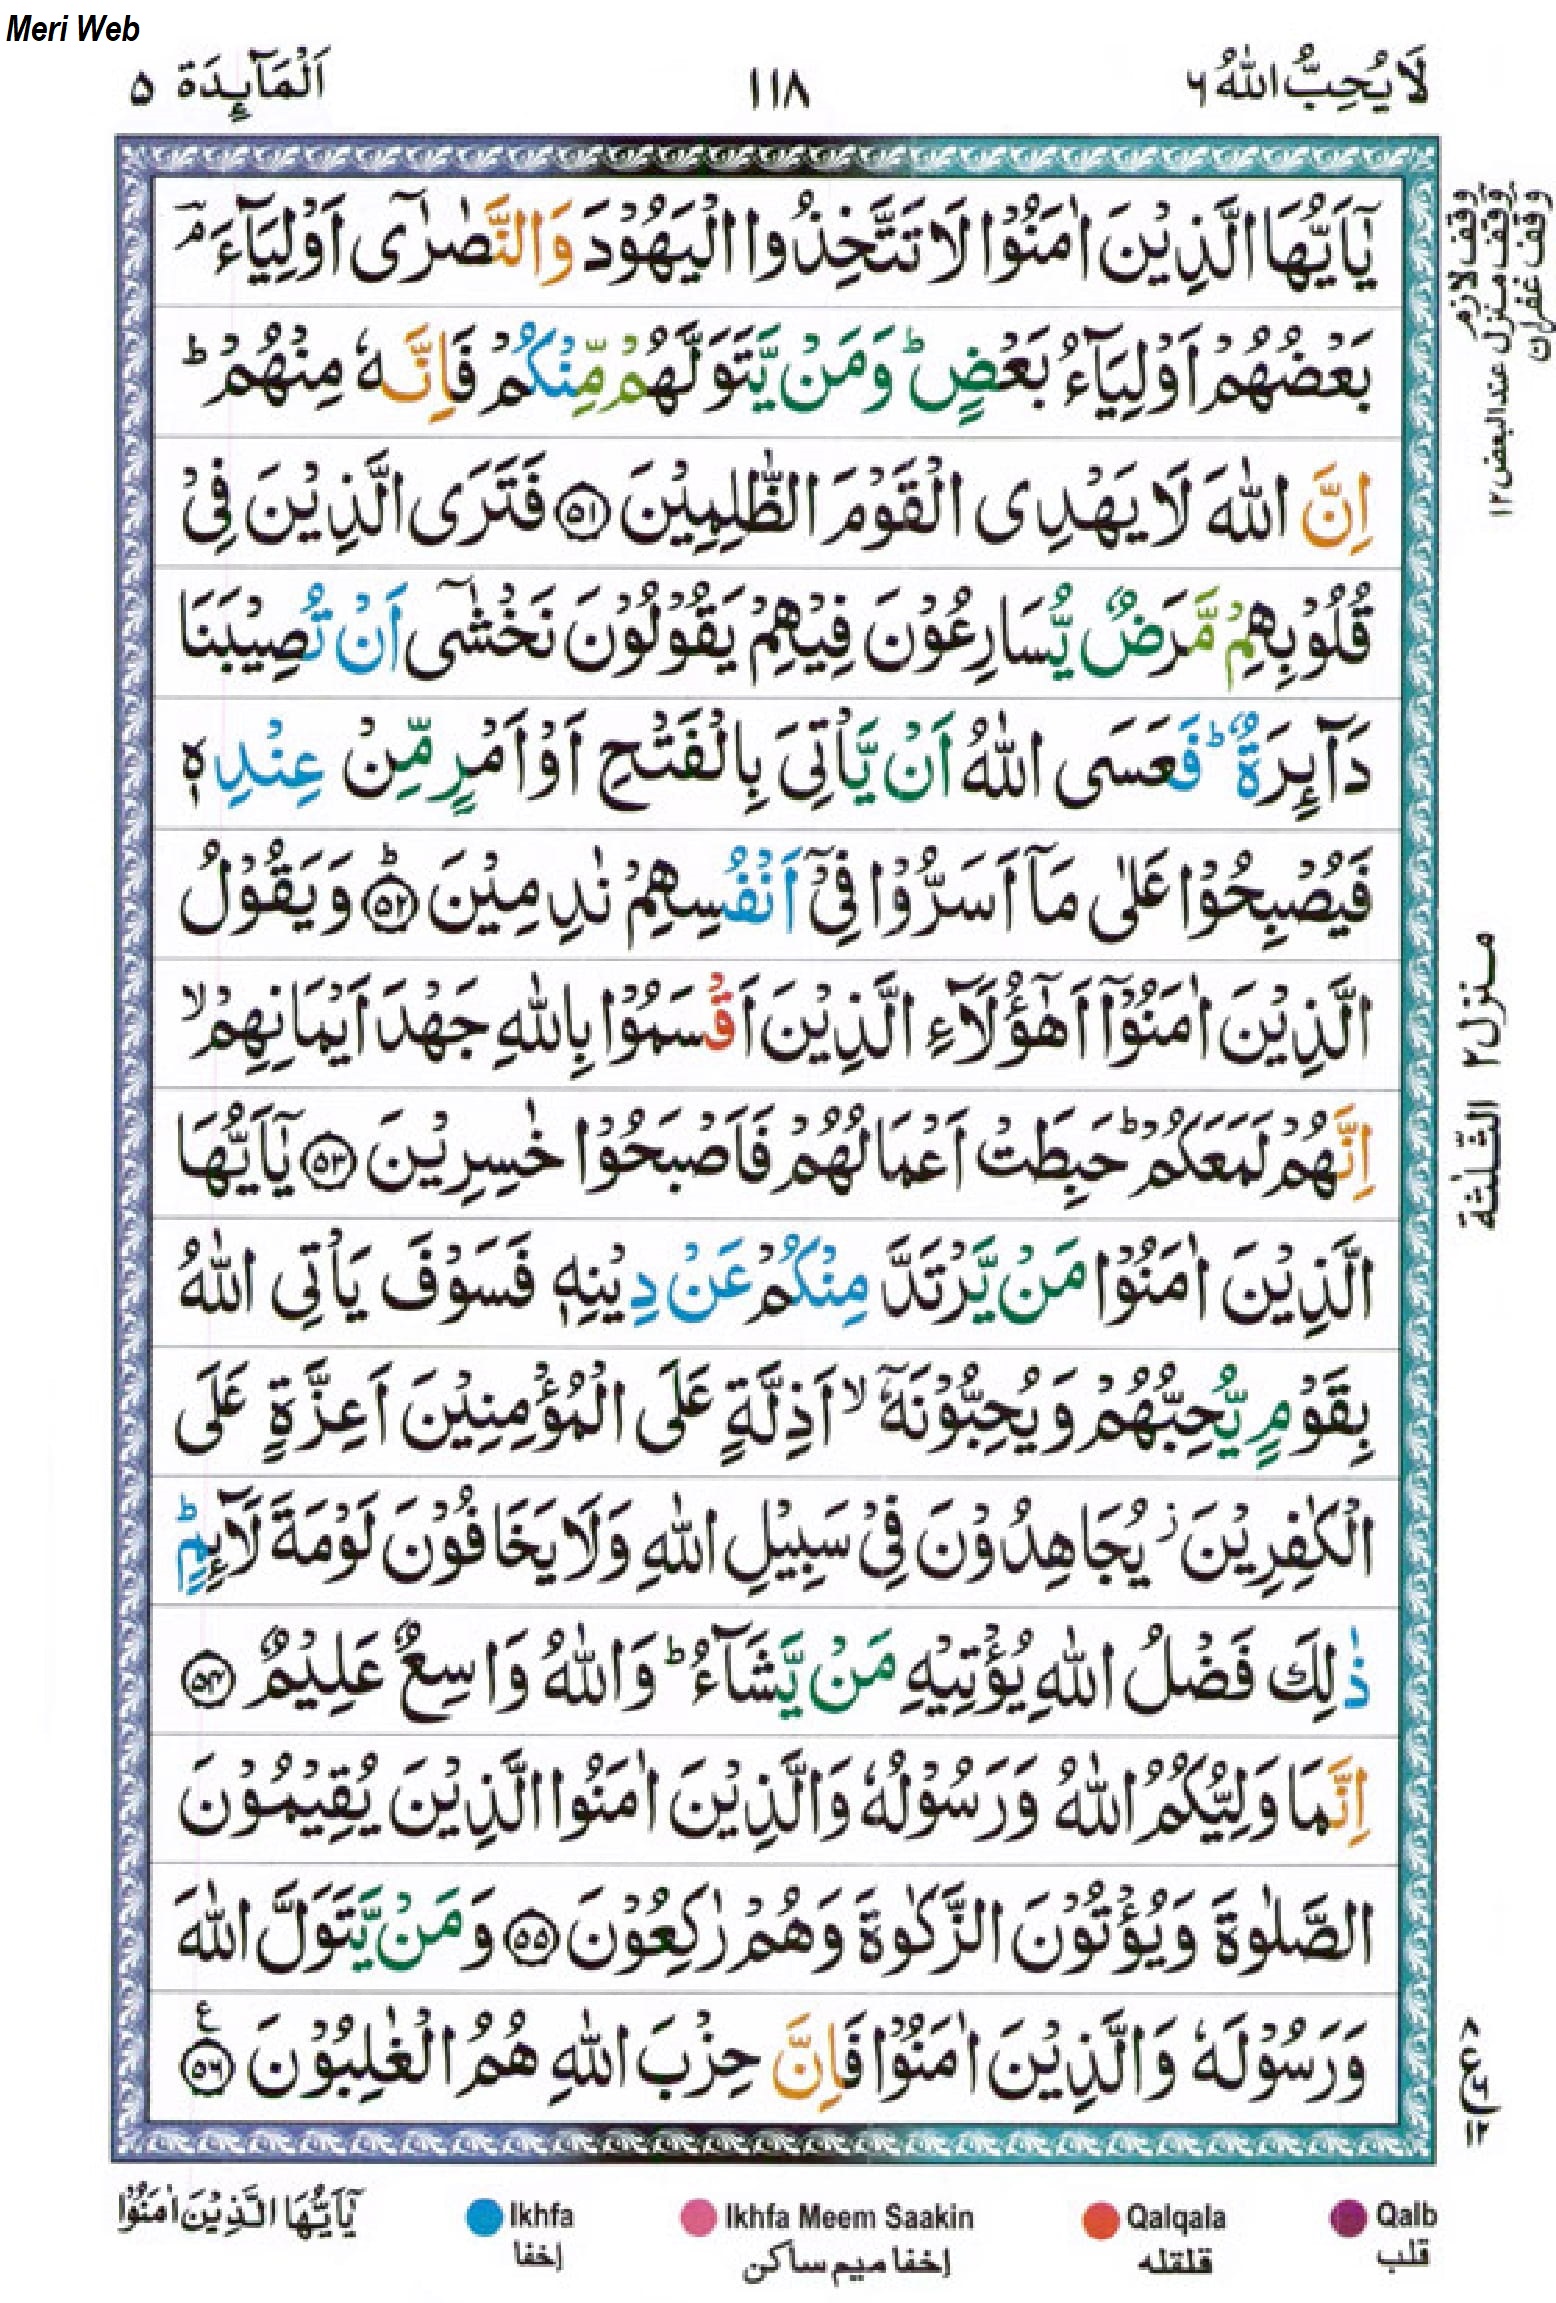 Meri Web
لَا يُحِبُّ اللّٰهُ ٦
١١٨
اَلْمَآىِٕدَة ٥
يٰۤاَيُّهَا الَّذِيْنَ اٰمَنُوْا لَا تَتَّخِذُوا الْيَهُوْدَ وَالنَّصٰرٰۤى اَوْلِيَآءَ ۘ
بَعْضُهُمْ اَوْلِيَآءُ بَعْضٍ ؕ وَمَنْ يَّتَوَلَّهُمْ مِّنْكُمْ فَاِنَّهٗ مِنْهُمْ ؕ
اِنَّ اللّٰهَ لَا يَهْدِى الْقَوْمَ الظّٰلِمِيْنَ ٥١ فَتَرَى الَّذِيْنَ فِىْ
قُلُوْبِهِمْ مَّرَضٌ يُّسَارِعُوْنَ فِيْهِمْ يَقُوْلُوْنَ نَخْشٰۤى اَنْ تُصِيْبَنَا
دَآىِٕرَةٌ ؕ فَعَسَى اللّٰهُ اَنْ يَّاْتِىَ بِالْفَتْحِ اَوْ اَمْرٍ مِّنْ عِنْدِهٖ
فَيُصْبِحُوْا عَلٰى مَاۤ اَسَرُّوْا فِىْۤ اَنْفُسِهِمْ نٰدِمِيْنَ ؕ ٥٢ وَيَقُوْلُ
الَّذِيْنَ اٰمَنُوْۤا اَهٰۤؤُلَآءِ الَّذِيْنَ اَقْسَمُوْا بِاللّٰهِ جَهْدَ اَيْمَانِهِمْ ۙ
اِنَّهُمْ لَمَعَكُمْ ؕ حَبِطَتْ اَعْمَالُهُمْ فَاَصْبَحُوْا خٰسِرِيْنَ ٥٣ يٰۤاَيُّهَا
الَّذِيْنَ اٰمَنُوْا مَنْ يَّرْتَدَّ مِنْكُمْ عَنْ دِيْنِهٖ فَسَوْفَ يَاْتِى اللّٰهُ
بِقَوْمٍ يُّحِبُّهُمْ وَيُحِبُّوْنَهٗۤ ۙ اَذِلَّةٍ عَلَى الْمُؤْمِنِيْنَ اَعِزَّةٍ عَلَى
الْكٰفِرِيْنَ ز يُجَاهِدُوْنَ فِىْ سَبِيْلِ اللّٰهِ وَلَا يَخَافُوْنَ لَوْمَةَ لَآىِٕمٍ ؕ
ذٰلِكَ فَضْلُ اللّٰهِ يُؤْتِيْهِ مَنْ يَّشَآءُ ؕ وَاللّٰهُ وَاسِعٌ عَلِيْمٌ ٥٤
اِنَّمَا وَلِيُّكُمُ اللّٰهُ وَرَسُوْلُهٗ وَالَّذِيْنَ اٰمَنُوا الَّذِيْنَ يُقِيْمُوْنَ
الصَّلٰوةَ وَيُؤْتُوْنَ الزَّكٰوةَ وَهُمْ رٰكِعُوْنَ ٥٥ وَمَنْ يَّتَوَلَّ اللّٰهَ
وَرَسُوْلَهٗ وَالَّذِيْنَ اٰمَنُوْا فَاِنَّ حِزْبَ اللّٰهِ هُمُ الْغٰلِبُوْنَ ٥٦ ع
وقف لازم
وقف منزل عند البعض ١٢
وقف غفران
منزل ٢ الثلٰثة
٨
ع
١٢
يٰۤاَيُّهَا الَّذِيْنَ اٰمَنُوْا
Ikhfa
إخفا
Ikhfa Meem Saakin
إخفا ميم ساكن
Qalqala
قلقله
Qalb
قلب